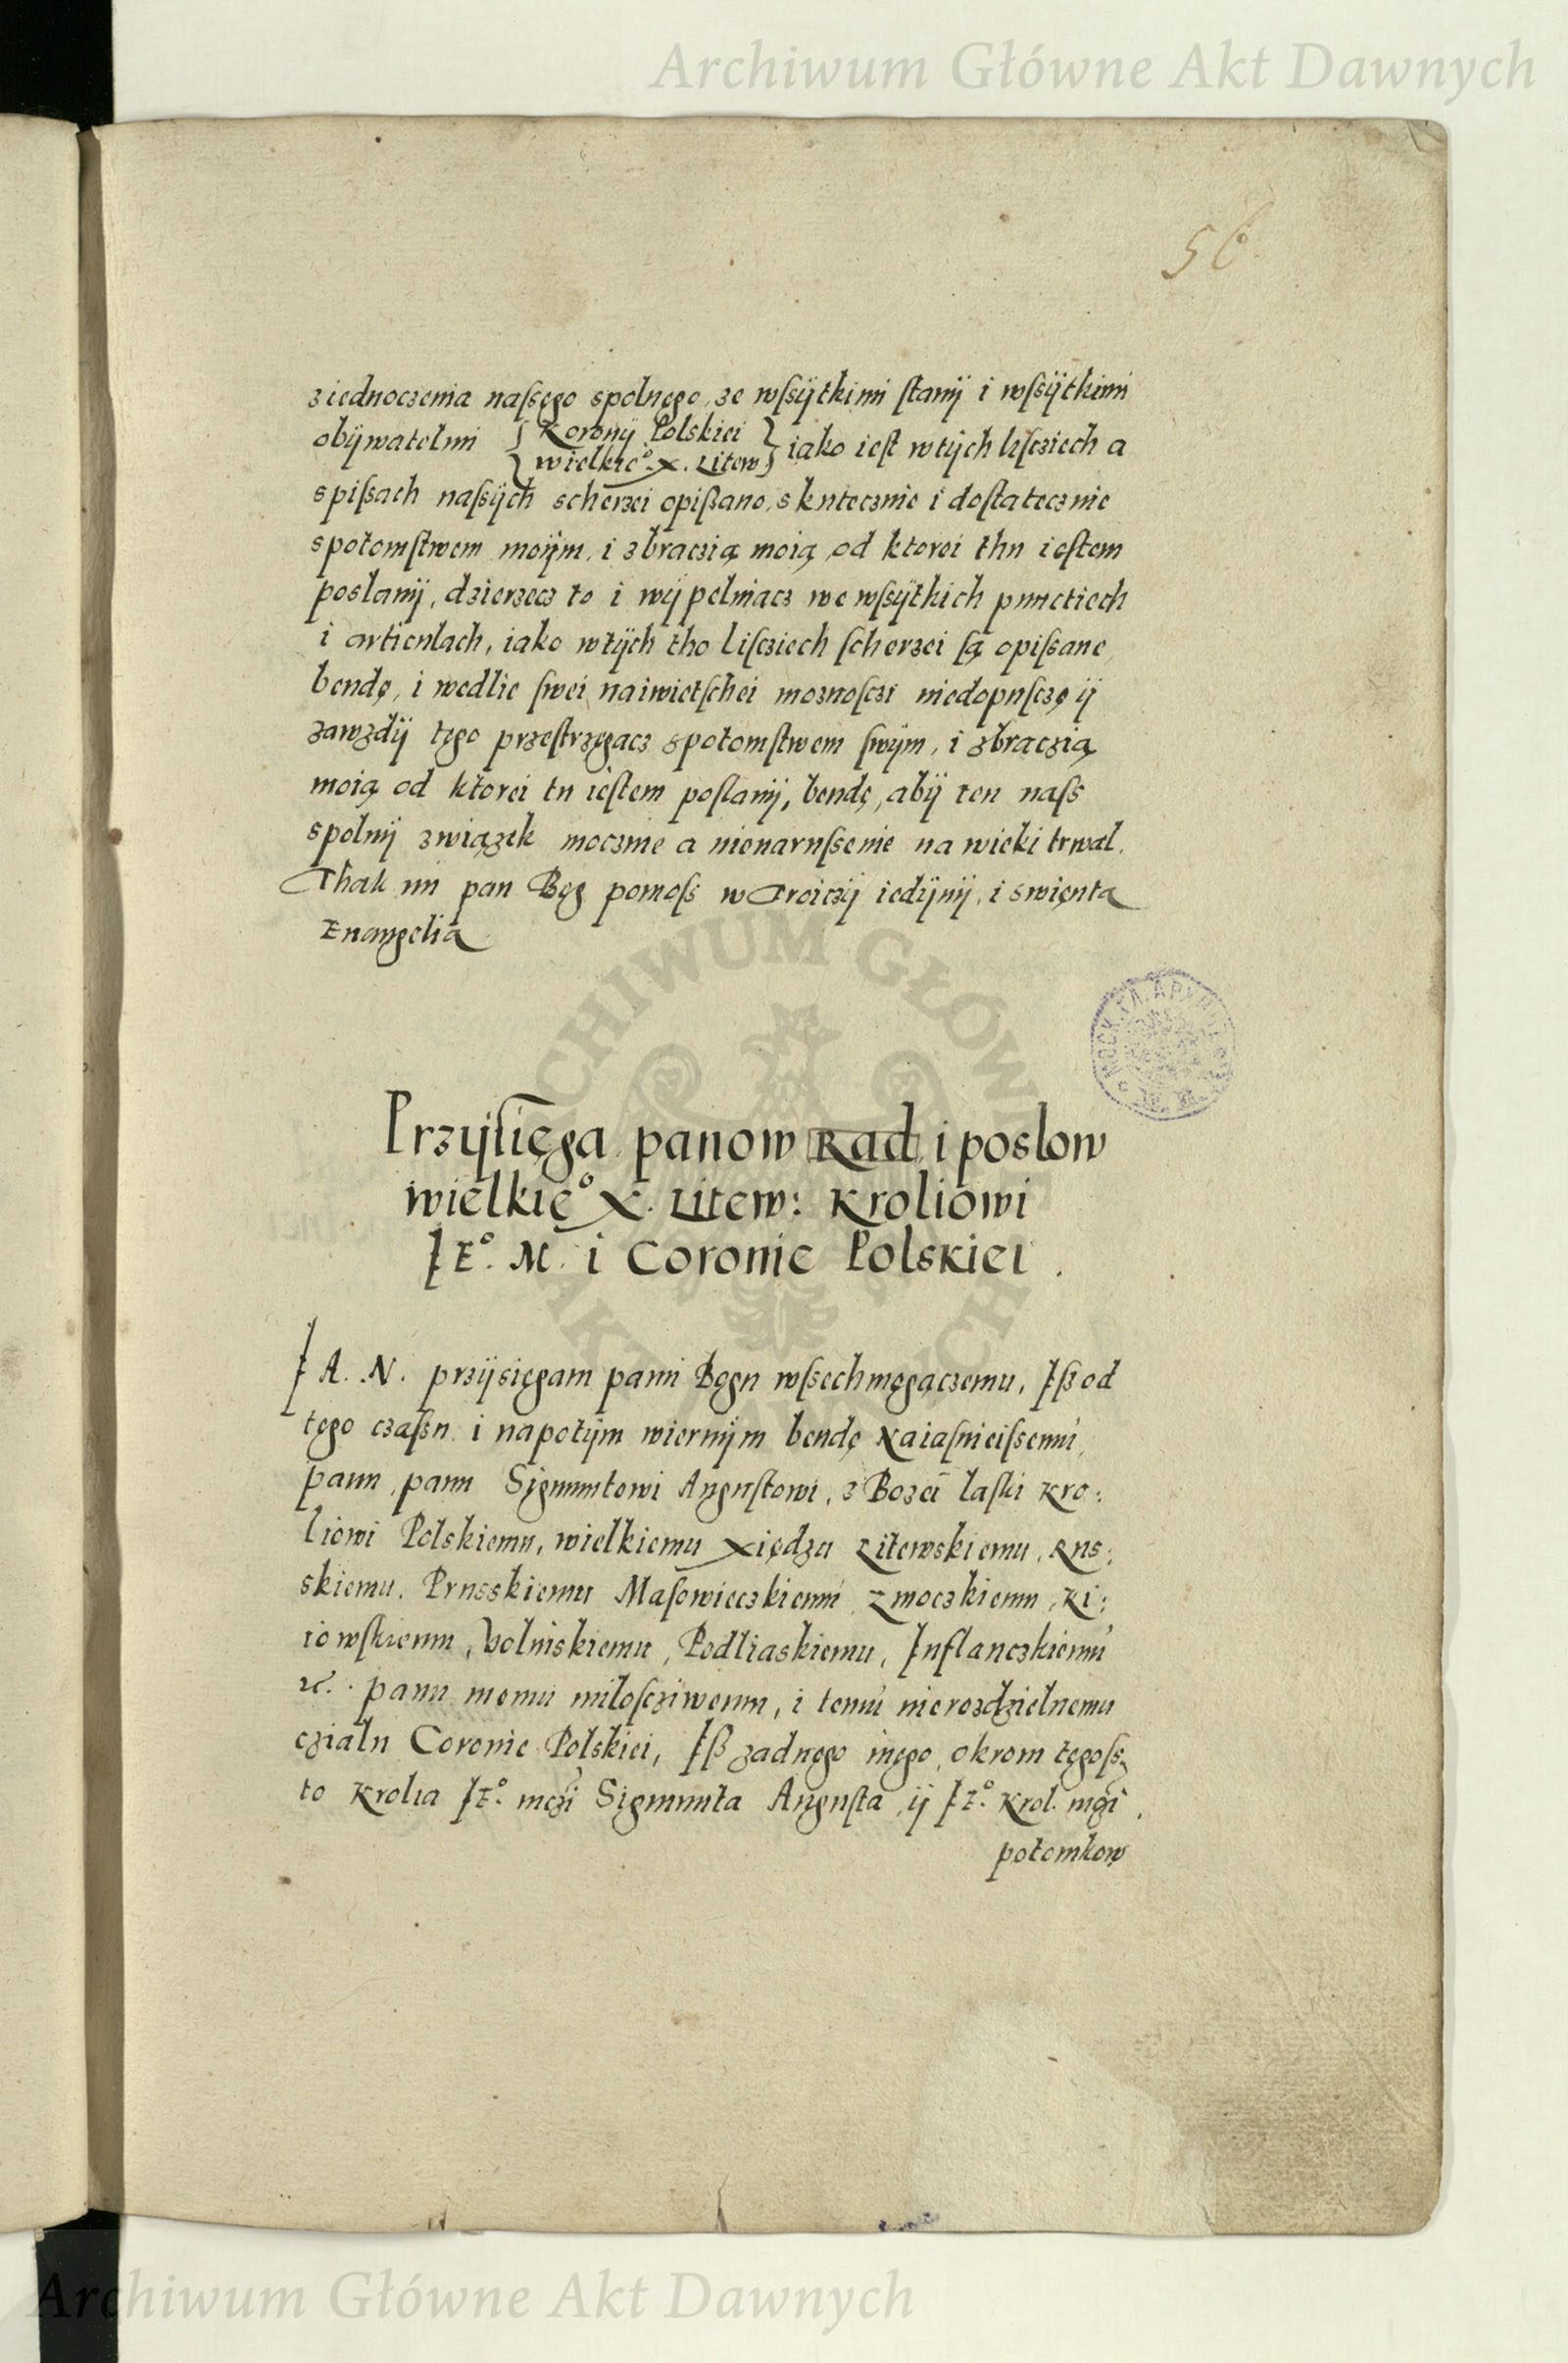 Archiwum Główne Akt Dawnych
56
ziednoczenia naſsęgo spolnęgo, ze wſsÿtkimi ſtanÿ i wſsÿtkimi
obÿwatelmi { Koronÿ Polskiei } iako ieſt wtÿch liſcziech a
{ wielkię° X. Litew }
spiſsach naſsÿch scherzei opiſsano, skutecznie i doſtatecznie
spotomſtwem moÿm, i zbraczią moią, od ktorei thu ieſtem
poslanÿ, dzierzecz to i wÿpelniacz we wſsÿtkich punctiech
i articulach, iako wtÿch tho liſcziech ſcherzei ſą opiſsane,
bendę, i wedlie ſwei naiwietſchei moznoſczi niedopuſczę ÿ
zawzdÿ tęgo przeſtrzęgacz zpotomſtwem ſwÿm, i zbraczią
moią od ktorei tu ieſtem poſlanÿ, bendę, abÿ ten naſs
spolnÿ związek mocznie a nienaruſsenie na wieki trwal.
Thak mi pan Bęg pomoſs w Troiczÿ iedÿnÿ, i swięnta
Euangelia
Przÿſięga panow Rad, i poslow
wielkię° X. Litew: Kroliowi
IE°. M. i Coronie Polskiei.
IA. N. przÿsięgam panu Bęgu wſsechmęgączemu, Iſs od
tęgo czaſsu i napotÿm wiernÿm bendę Naiaſnieiſsemu
panu, panu Sigmuntowi Auguſtowi, z Bozei laſki Kro:
liowi Polskiemu, wielkiemu Xiędzu Litewskiemu, Rus:
skiemu, Prusskiemu Maſowieczkiemu, Zmoczkiemu, Ki:
iowſkiemu, Volniskiemu, Podliaskiemu, Inflanczkiemu
etc. panu memu miloſcziwemu, i temu nierozdzielnemu
czialu Coronie Polskiei, Iſs zadnęgo inęgo, okrom tęgoſs
to Krolia IE°. mczi Sigmunta Auguſta, ÿ IE°. Krol. mczi,
potomkow
Archiwum Główne Akt Dawnych